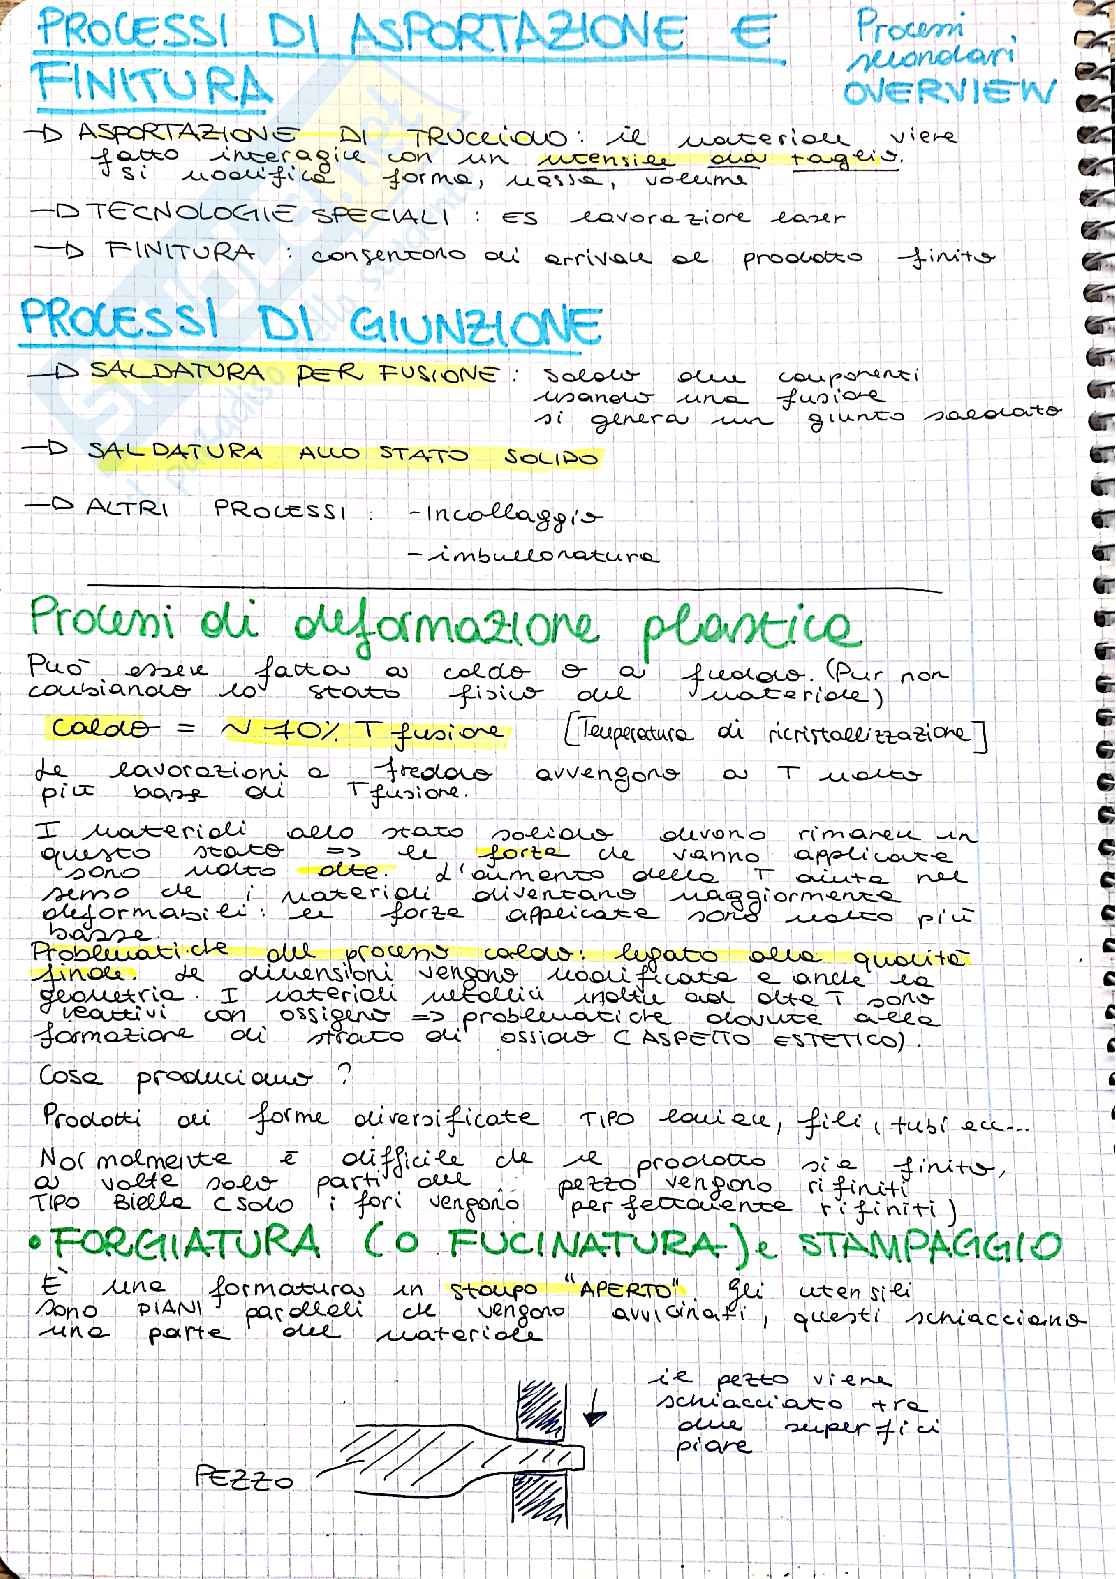 PROCESSI DI ASPORTAZIONE E
FINITURA
Processi
secondari
OVERVIEW
→ ASPORTAZIONE DI TRUCCIOLO: il materiale viene
fatto interagire con un utensile da taglio.
si modifica forma, massa, volume
→ TECNOLOGIE SPECIALI : ES lavorazione laser
→ FINITURA : consentono di arrivare al prodotto finito
PROCESSI DI GIUNZIONE
→ SALDATURA PER FUSIONE: saldo due componenti
usando una fusione
si genera un giunto saldato
→ SALDATURA ALLO STATO SOLIDO
→ ALTRI PROCESSI : -Incollaggio
-imbullonatura
Processi di deformazione plastica
Può essere fatta a caldo o a freddo. (Pur non
cambiando lo stato fisico del materiale)
caldo = ~ 70% T fusione [Temperatura di ricristallizzazione]
Le lavorazioni a freddo avvengono a T molto
più basse di T fusione.
I materiali allo stato solido devono rimanere in
questo stato => le forze che vanno applicate
sono molto alte. L'aumento della T aiuta nel
senso che i materiali diventano maggiormente
deformabili: le forze applicate sono molto più
basse.
Problematiche del processo caldo: legato alla qualità
finale. Le dimensioni vengono modificate e anche la
geometria. I materiali metallici inoltre ad alte T sono
reattivi con ossigeno => problematiche dovute alla
formazione di strato di ossido (ASPETTO ESTETICO).
Cosa produciamo ?
Prodotti di forme diversificate TIPO lamiere, fili, tubi ecc...
Normalmente è difficile che il prodotto sia finito,
a volte solo parti del pezzo vengono rifiniti
TIPO Biella (solo i fori vengono perfettamente rifiniti)
• FORGIATURA (O FUCINATURA) e STAMPAGGIO
È una formatura in stampo "APERTO". Gli utensili
sono PIANI paralleli che vengono avvicinati, questi schiacciano
una parte del materiale
il pezzo viene
schiacciato tra
due superfici
piane
PEZZO